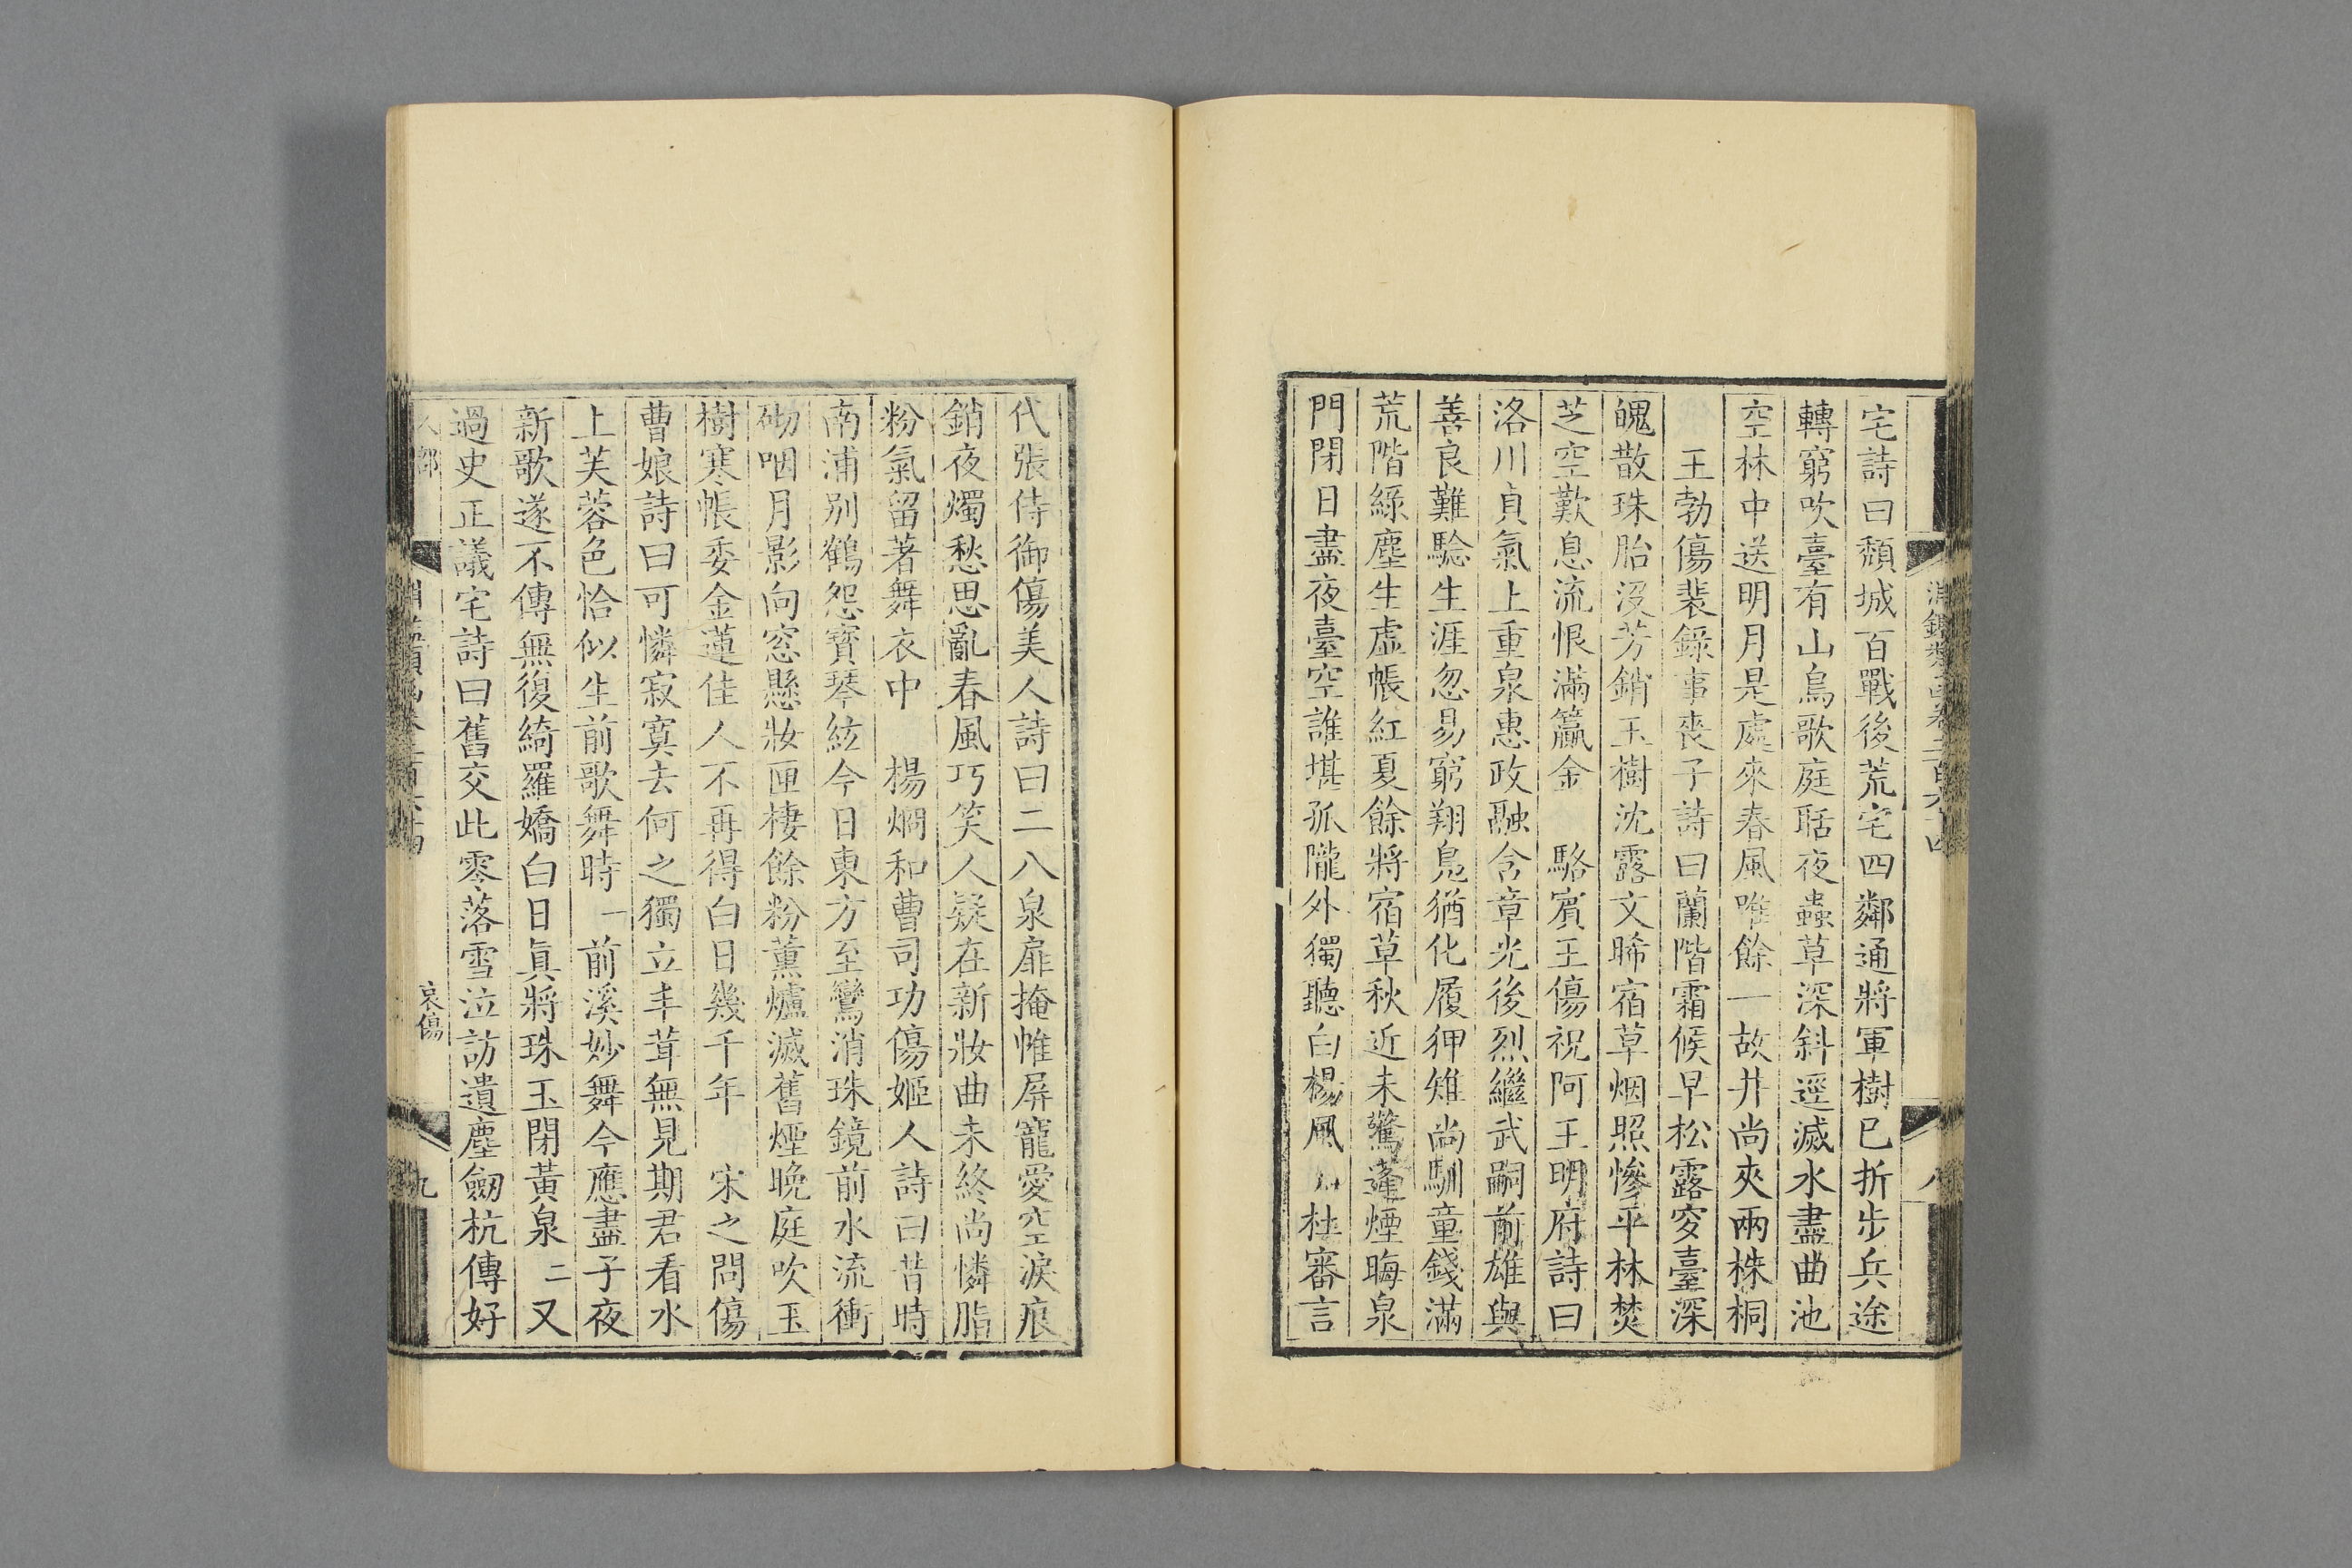 宅詩曰頹城百戰後荒宅四鄰通將軍樹已折步兵途
轉窮吹臺有山鳥歌庭聒夜蟲草深斜逕滅水盡曲池
空林中送明月是處來春風唯餘一故井尚夾兩株桐
王勃傷裴錄事喪子詩曰蘭階霜候早松露穸臺深
魄散珠胎沒芳銷玉樹沈露文晞宿草烟照慘平林焚
芝空歎息流恨滿籯金 駱賓王傷祝阿王明府詩曰
洛川貞氣上重泉惠政融含章光後烈繼武嗣前雄與
善良難驗生涯忽易窮翔鳧猶化履狎雉尚馴童錢滿
荒階綠塵生虛帳紅夏餘將宿草秋近未驚蓬煙晦泉
門閉日盡夜臺空誰堪孤隴外獨聽白楊風 杜審言
代張侍御傷美人詩曰二八泉扉掩帷屏寵愛空淚痕
銷夜燭愁思亂春風巧笑人疑在新妝曲未終尚憐脂
粉氣留著舞衣中 楊烱和曹司功傷姬人詩曰昔時
南浦別鶴怨寶琴絃今日東方至鸞消珠鏡前水流衝
砌咽月影向窓懸妝匣棲餘粉薰爐滅舊煙晚庭吹玉
樹寒帳委金蓮佳人不再得白日幾千年 宋之問傷
曹娘詩曰可憐寂寞去何之獨立丰茸無見期君看水
上芙蓉色恰似生前歌舞時一前溪妙舞今應盡子夜
新歌遂不傳無復綺羅嬌白日眞將珠玉閉黃泉二又
過史正議宅詩曰舊交此零落雪泣訪遺塵劒杭傳好
人部
哀傷
九